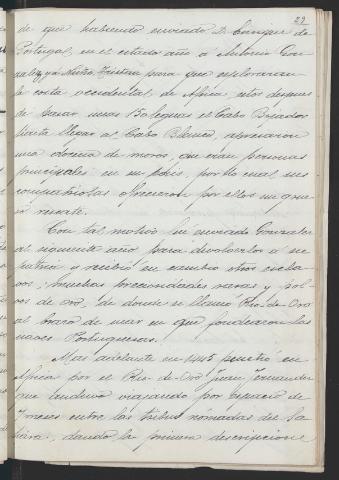 29
de que habiendo enviado D. Enrique de
Portugal, en el citado año a Antonio Gon
zalez, y a Nuño Tristan para que exploraran
la costa occidental de Africa, estos despues
de pasar unas 50 leguas el Cabo Bojador
hasta llegar al Cabo Blanco, apresaron
una docena de moros, que eran personas
principales en su pais, por lo cual sus
compatriotas ofrecieron por ellos un gran
rescate.
Con tal motivo fue enviado Gonzalez
al siguiente año para devolverlos a su
patria y recibió en cambio otros escla
vos, muchas preciosidades raras y pol-
vos de oro, de donde se llamó Rio-de-Oro
al brazo de mar en que fondearon las
naves Portuguesas.
Mas adelante en 1445 penetró en
Africa por el Rio-de-Oro Juan Fernandez
que anduvo viajando por espacio de
7 meses entre las tribus nómadas del Sa
hara, dando la primera descripcion